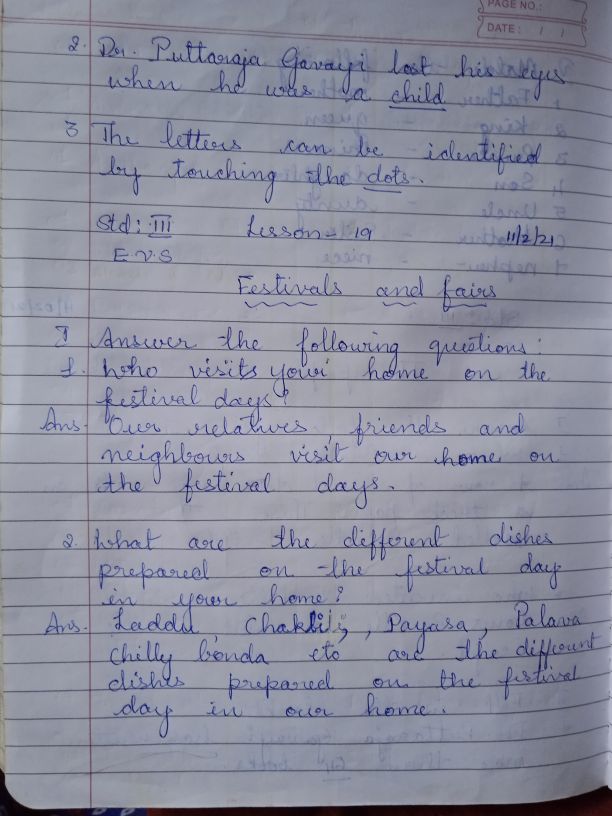 PAGE NO.:
DATE: / /
2. Dr. Puttaraja Gavayi lost his eyes
when he was a child
3 The letters can be identified
by touching the dots.
Std: III Lesson - 19 11/2/21
E.V.S
Festivals and fairs
I Answer the following questions:
1. Who visits your home on the
festival days?
Ans. Our relatives, friends and
neighbours visit our home on
the festival days.
2. What are the different dishes
prepared on the festival day
in your home?
Ans. Laddu, Chaklis, Payasa, Palava
chilly bonda etc are the different
dishes prepared on the festival
day in our home.